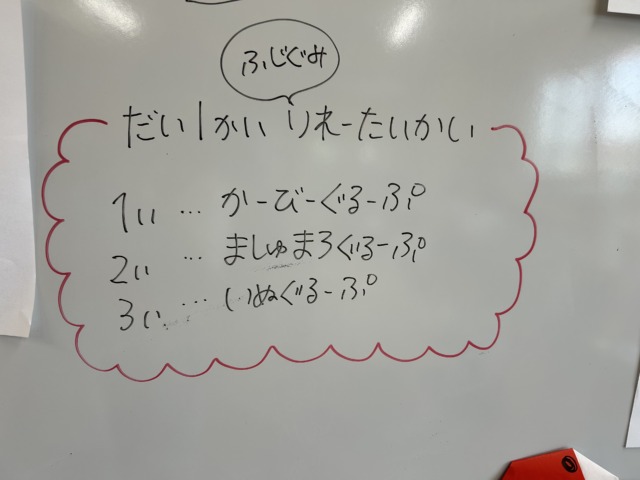 ふじぐみ
だい1かい りれーたいかい
1い … かーびーぐるーぷ
2い … ましゅまろぐるーぷ
3い … いぬぐるーぷ